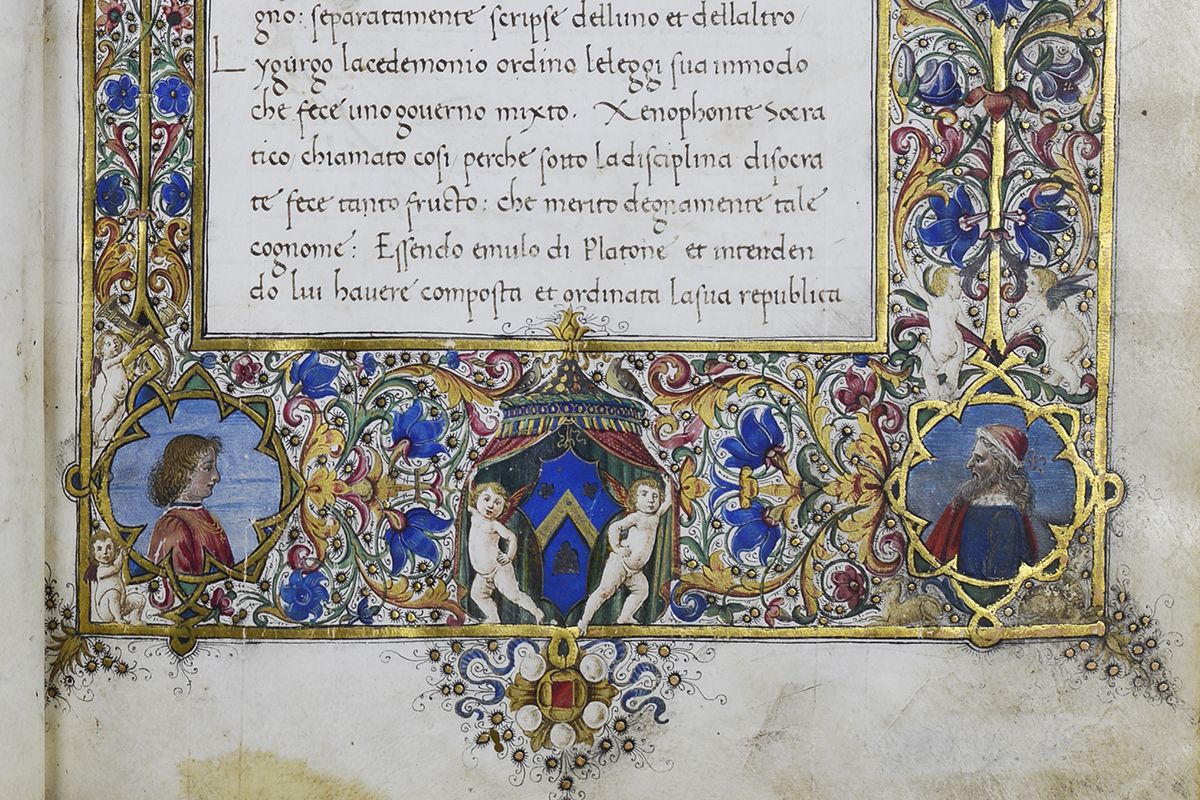 gno: separatamente scripse delluno et dellaltro/
Lygurgo lacedemonio ordino leleggi sua inmodo
che fece unogoverno mixto. Xenophonte Socra
tico/chiamato cosi/perche sotto ladisciplina disocra
te fece tanto fructo: che merito degnamente tale
cognome: Essendo emulo di Platone et intenden
do lui havere composta et ordinata lasua republica